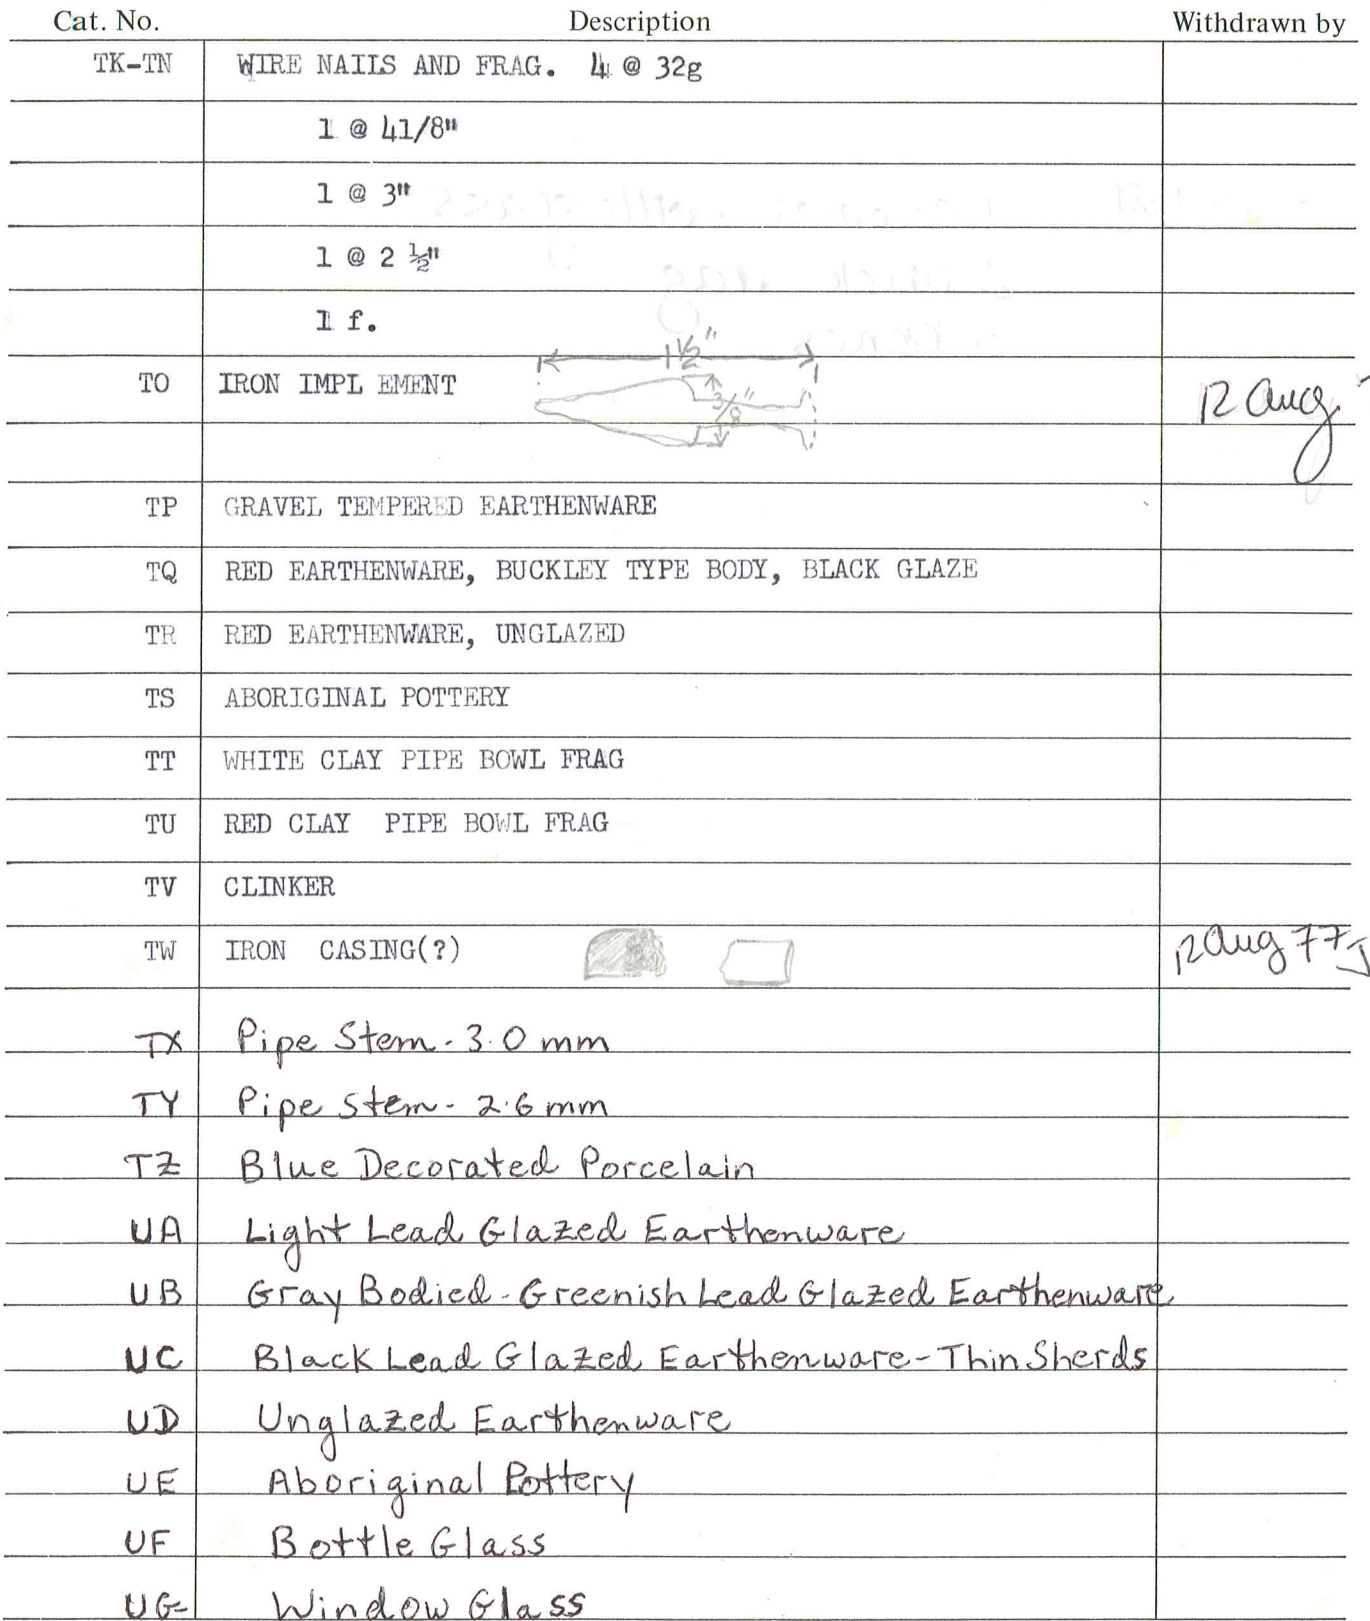 Cat. No. Description Withdrawn by
TK-TN WIRE NAILS AND FRAG. 4 @ 32g
1 @ 41/8"
1 @ 3"
1 @ 2 ½"
1 f.
1 ½"
TO IRON IMPL EMENT 3/8" 12 Aug
TP GRAVEL TEMPERED EARTHENWARE
TQ RED EARTHENWARE, BUCKLEY TYPE BODY, BLACK GLAZE
TR RED EARTHENWARE, UNGLAZED
TS ABORIGINAL POTTERY
TT WHITE CLAY PIPE BOWL FRAG
TU RED CLAY PIPE BOWL FRAG
TV CLINKER
TW IRON CASING(?) 12 Aug 77
TX Pipe Stem - 3.0 mm
TY Pipe Stem - 2.6 mm
TZ Blue Decorated Porcelain
UA Light Lead Glazed Earthenware
UB Gray Bodied - Greenish Lead Glazed Earthenware
UC Black Lead Glazed Earthenware - Thin Sherds
UD Unglazed Earthenware
UE Aboriginal Pottery
UF Bottle Glass
UG Window Glass